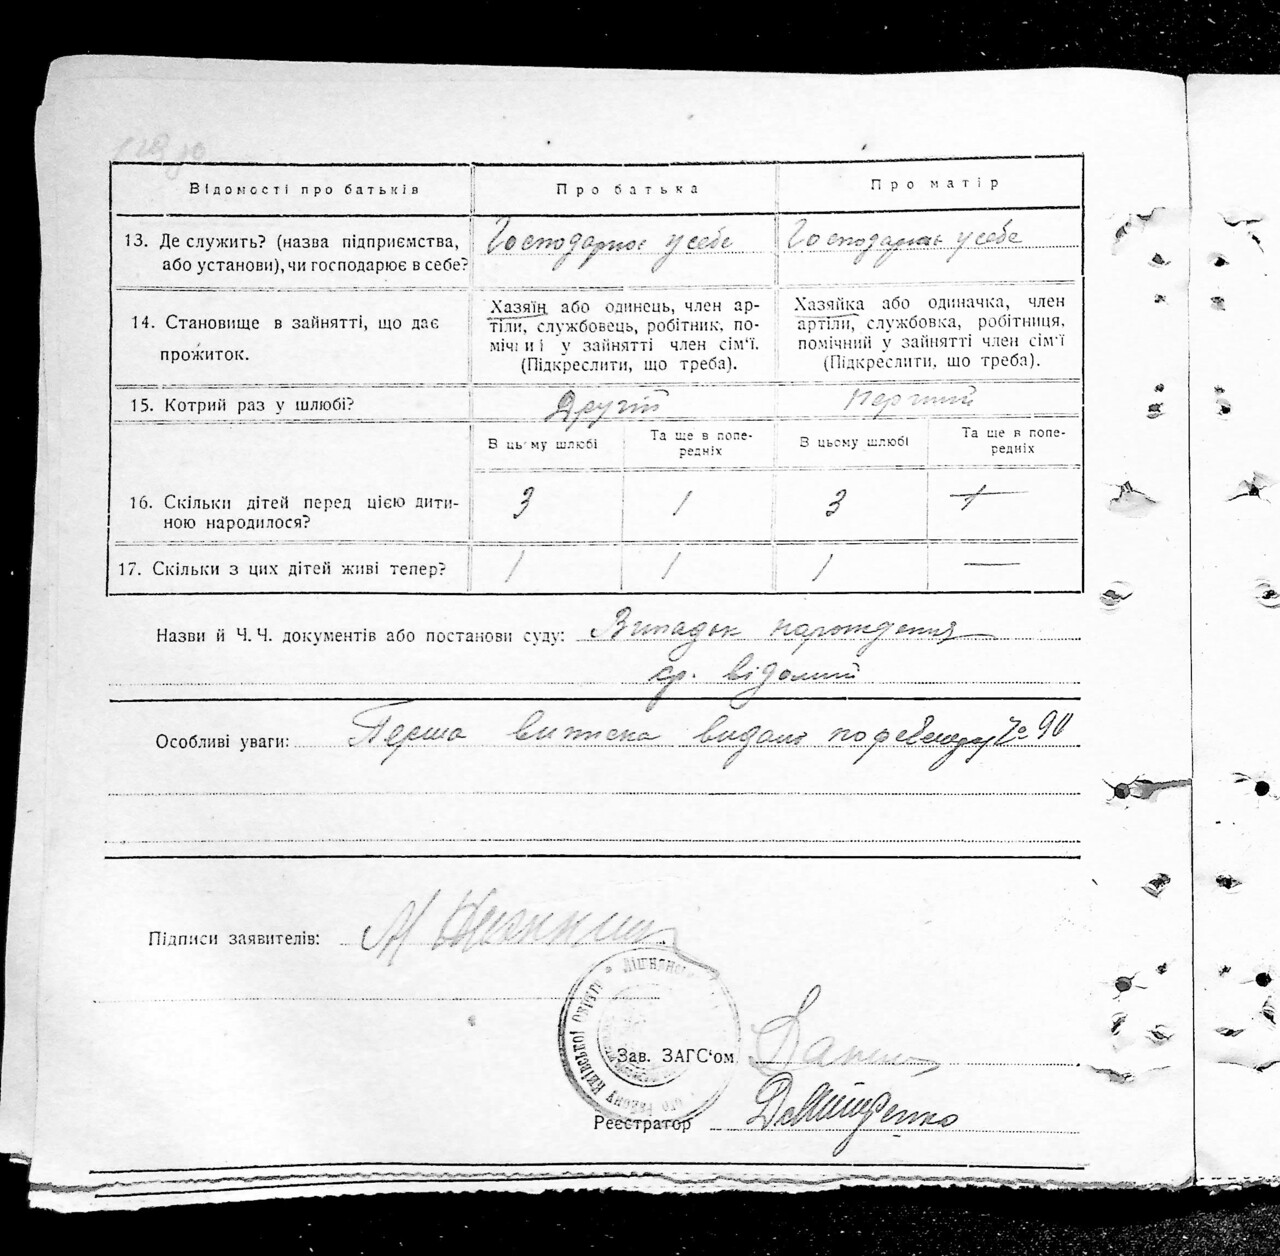 Відомості про батьків
Про батька
Про матір
13. Де служить? (назва підприємства, або установи), чи господарює в себе?
Господарює у себе
Господарює у себе
14. Становище в зайнятті, що дає прожиток.
Хазяїн або одинець, член ар-
тіли, службовець, робітник, по-
мічний у зайнятті член сім'ї.
(Підкреслити, що треба).
Хазяйка або одиначка, член
артіли, службовка, робітниця,
помічний у зайнятті член сім'ї
(Підкреслити, що треба).
15. Котрий раз у шлюбі?
Другій
Перший
В цьому шлюбі
Та ще в попе-
редніх
В цьому шлюбі
Та ще в попе-
редніх
16. Скільки дітей перед цією дити-
ною народилося?
3
1
3
17. Скільки з цих дітей живі тепер?
1
1
1
—
Назви й Ч. Ч. документів або постанови суду: Випадок нарождения
відомий
Особливі уваги: Перша виписка видана по № 90
Підписи заявителів:
Зав. ЗАГС'ом
Реєстратор Дмитренко